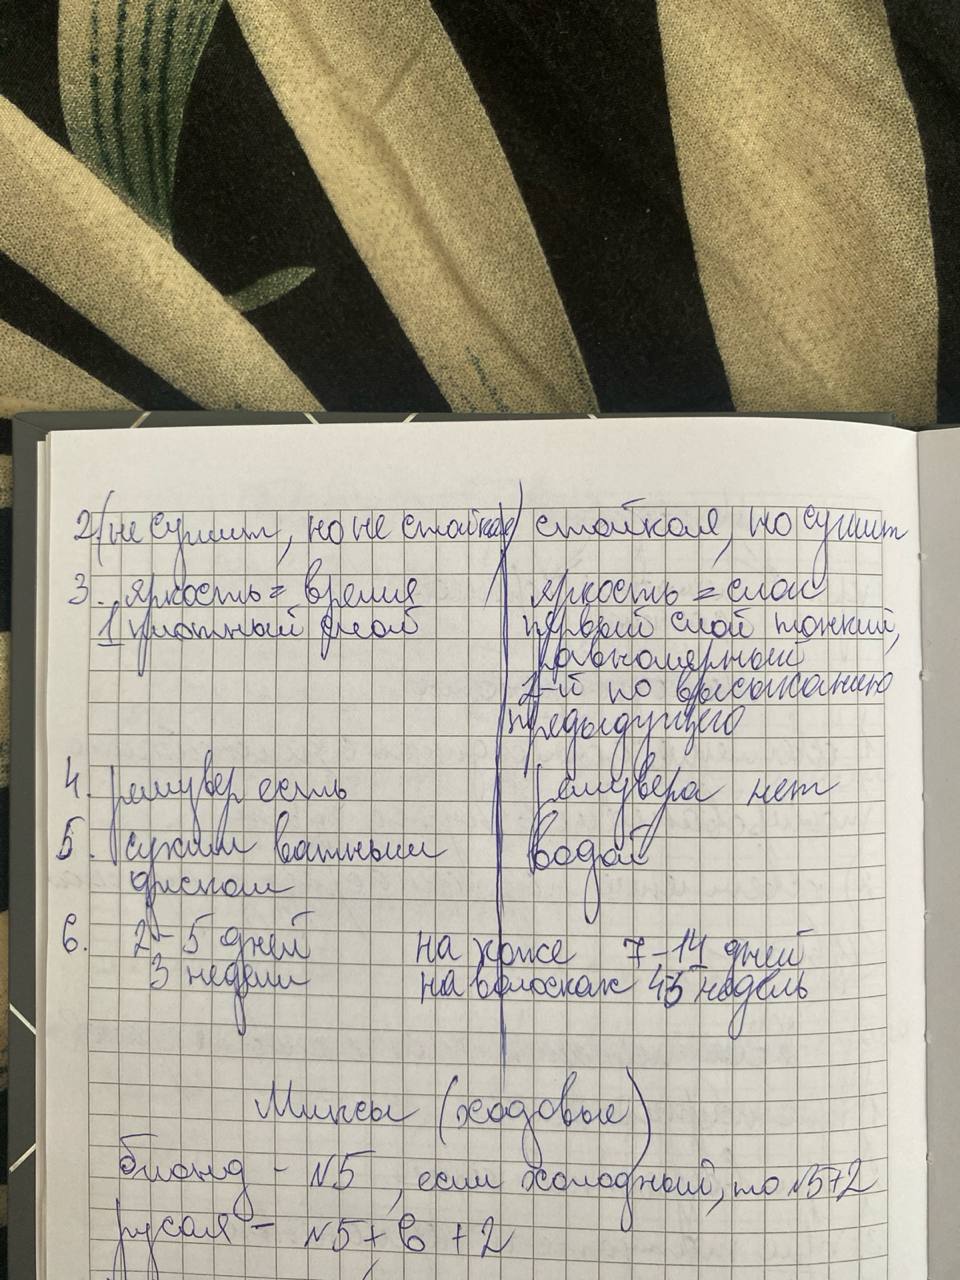 2. (не сушит, но не стойкая) стойкая, но сушит
3. яркость = время яркость = слои
1 плотный слой первый слой тонкий,
равномерный
2-й по высыханию
предыдущего
4. ремувер есть ремувера нет
5. сухим ватным водой
диском
6. 2-5 дней на коже 7-14 дней
3 недели на волосках недель
Миксы (ходовые)
блонд - №5, если холодный, то №5+2
русая - №5 + 6 + 2